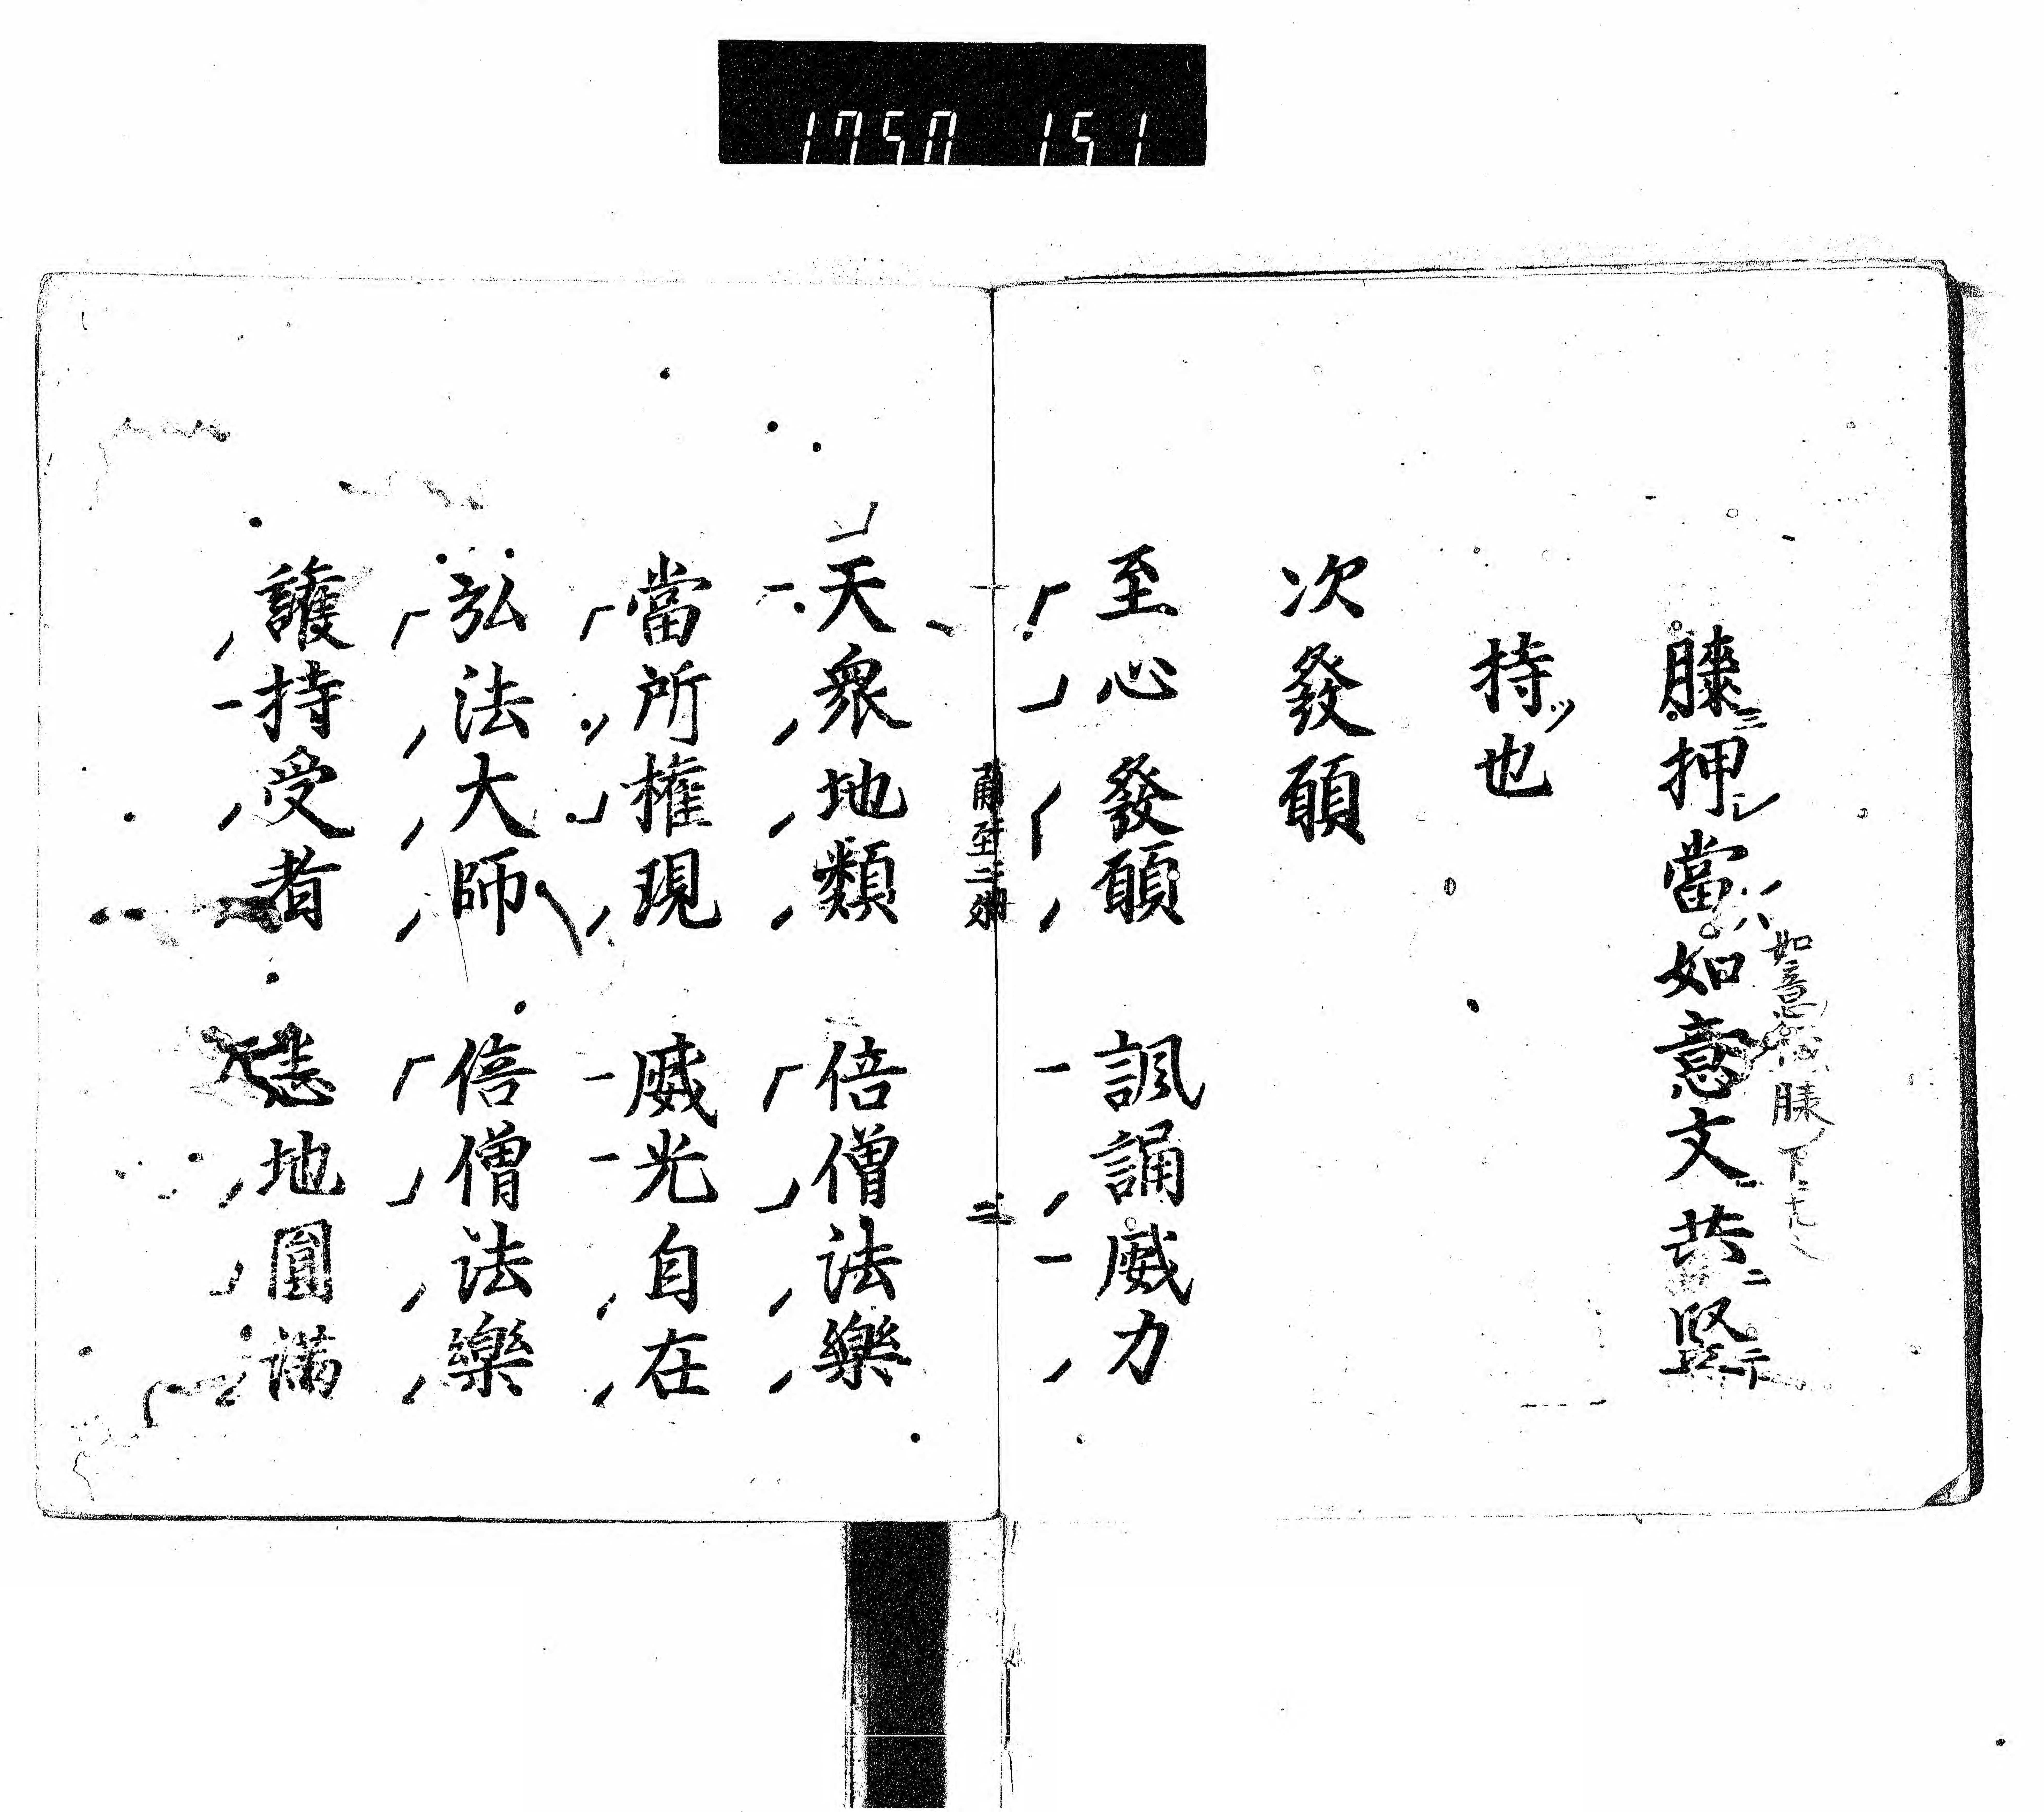 1750 151
膝ニ押シ當ハ如意文共ニ竪ニ
持ツ也
次發願
至心發願 諷誦威力
天衆地類 倍僧法樂
當所權現 威光自在
弘法大師 倍僧法樂
護持受者 悉地圓滿